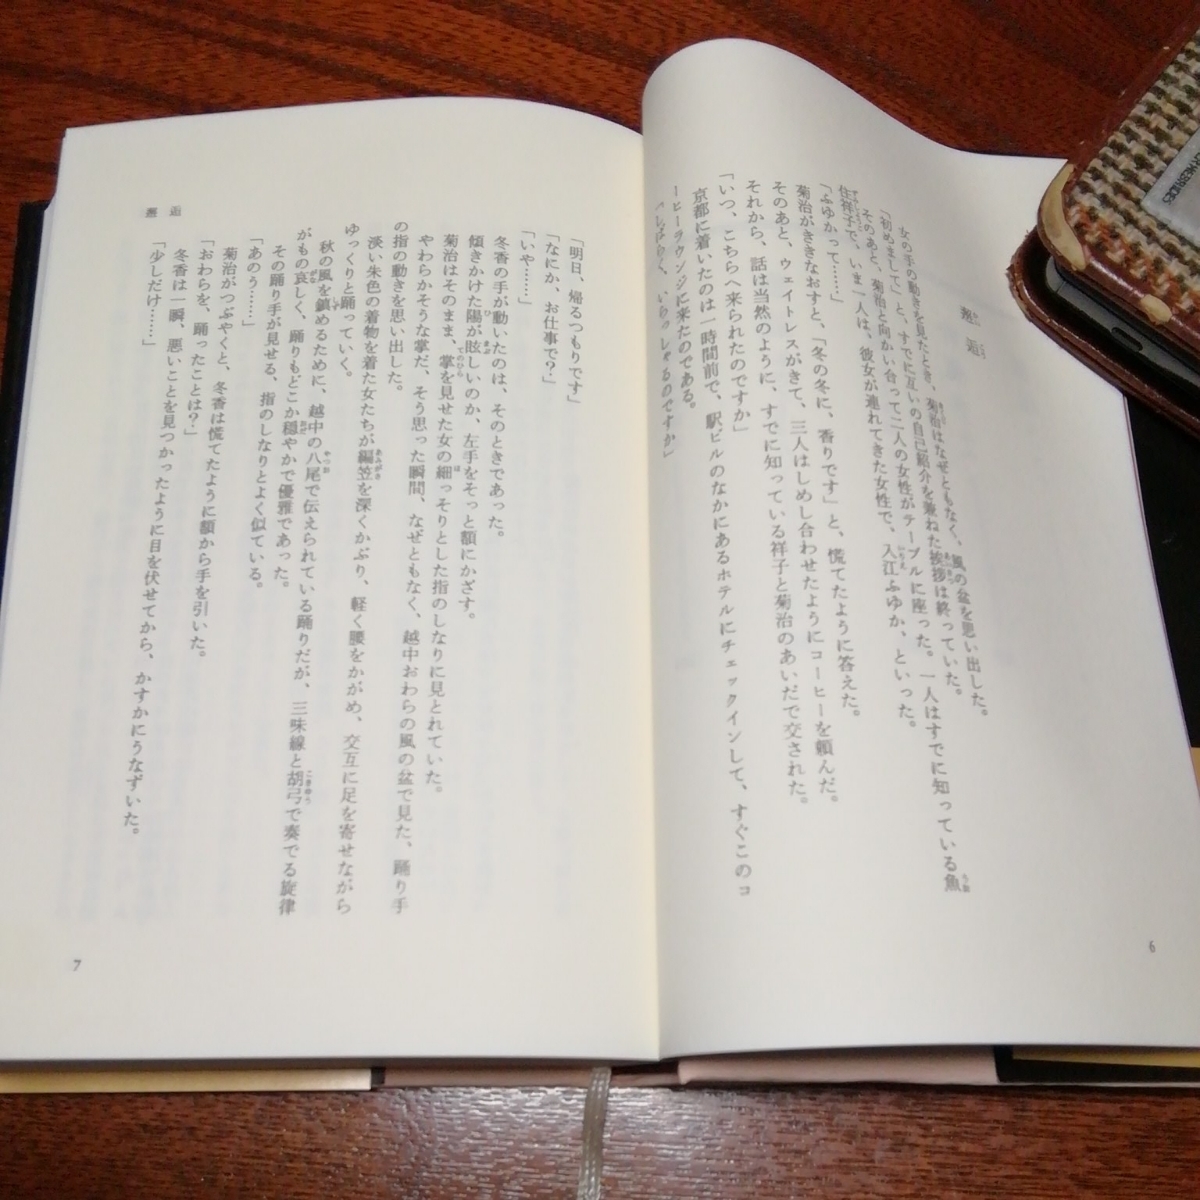 邂逅
女の手の動きを見たとき、菊治はなぜともなく、風の盆を思い出した。
「初めまして」と、すでに互いの自己紹介を兼ねた挨拶は終っていた。
そのあと、菊治と向かい合って二人の女性がテーブルに座った。一人はすでに知っている魚
住祥子で、いま一人は、彼女が連れてきた女性で、入江ふゆか、といった。
「ふゆかって……」
菊治がききなおすと、「冬の冬に、香りです」と、慌てたように答えた。
そのあと、ウェイトレスがきて、三人はしめし合わせたようにコーヒーを頼んだ。
それから、話は当然のように、すでに知っている祥子と菊治のあいだで交された。
「いつ、こちらへ来られたのですか」
京都に着いたのは一時間前で、駅ビルのなかにあるホテルにチェックインして、すぐこのコ
ーヒーラウンジに来たのである。
「しばらく、いらっしゃるのですか」
6
「明日、帰るつもりです」
「なにか、お仕事で？」
「いや……」
冬香の手が動いたのは、そのときであった。
傾きかけた陽が眩しいのか、左手をそっと額にかざす。
菊治はそのまま、掌を見せた女の細っそりとした指のしなりに見とれていた。
やわらかそうな掌だ、そう思った瞬間、なぜともなく、越中おわらの風の盆で見た、踊り手
の指の動きを思い出した。
淡い朱色の着物を着た女たちが編笠を深くかぶり、軽く腰をかがめ、交互に足を寄せながら
ゆっくりと踊っていく。
秋の風を鎮めるために、越中の八尾で伝えられている踊りだが、三味線と胡弓で奏でる旋律
がもの哀しく、踊りもどこか穏やかで優雅であった。
その踊り手が見せる、指のしなりとよく似ている。
「あのう……」
菊治がつぶやくと、冬香は慌てたように額から手を引いた。
「おわらを、踊ったことは？」
冬香は一瞬、悪いことを見つかったように目を伏せてから、かすかにうなずいた。
「少しだけ……」
邂逅
7